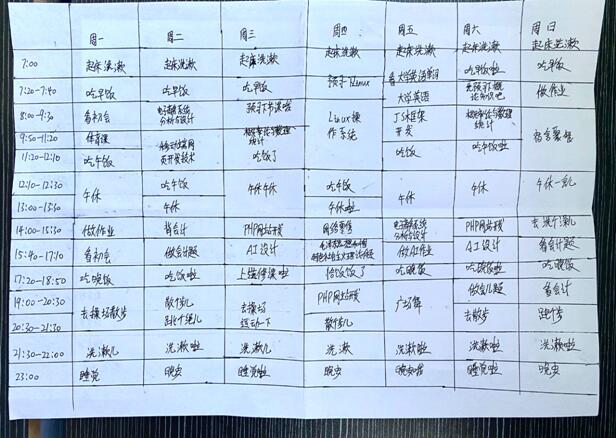 周一 周二 周三 周四 周五 周六 周日
7:00 起床洗漱 起床洗漱 起床洗漱 起床洗漱 起床洗漱 起床洗漱 起床洗漱
7:20-7:40 吃早饭 吃早饭 吃早饭 预习Linux 看大学英语 吃早饭啦 吃早饭
8:00-9:30 看初会 电子商务系统分析与设计 预习下节课啦 Linux操作系统 大学英语 做作业
9:50-11:20 体育课 移动端网页开发技术 概率论与数理统计 JS框架开发 概率论与数理统计 宿舍聚餐
11:20-12:10 吃午饭 吃饭了 吃饭 吃午饭啦
12:10-12:30 午休 吃午饭 午休午休 吃午饭 午休 午休 午休一会儿
13:00-13:50 午休 午休啦
14:00-15:30 做作业 背会计 PHP网站开发 电子商务系统分析与设计 PHP网站开发
15:40-17:10 看初会 做会计题 AI设计 做AI作业 AI设计 看会计题
17:20-18:50 吃晚饭 吃饭啦 恰饭饭了 吃晚饭 吃晚饭啦 吃晚饭
19:00-20:30 去操场散步 散步儿 去操场运动一下 PHP网站开发 广场舞 做会儿题 看会计
20:30-21:30 跳个绳儿 散步儿 去散步
21:30-22:00 洗漱儿 洗漱啦 洗漱儿 洗漱 洗漱啦 洗漱啦 洗漱啦
23:00 睡觉 晚安 睡觉啦 晚安 睡觉啦 晚安